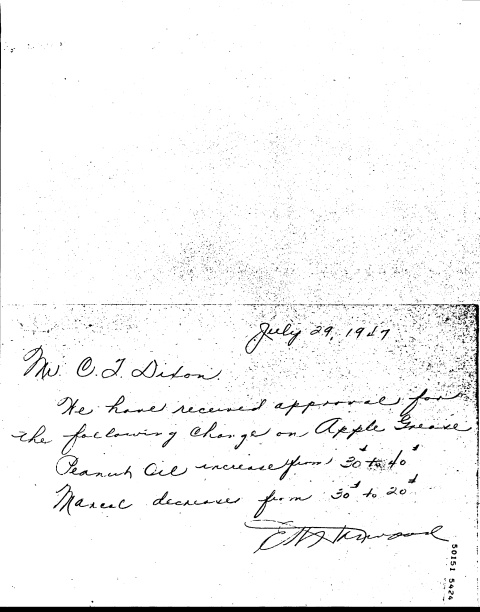 July 29, 1947
Mr C. T. Dixon.
We have received approval for
the following change on Apple Grease
Peanut Oil increase from 30# to 40#
decreases from 30# to 20#
50151 5424